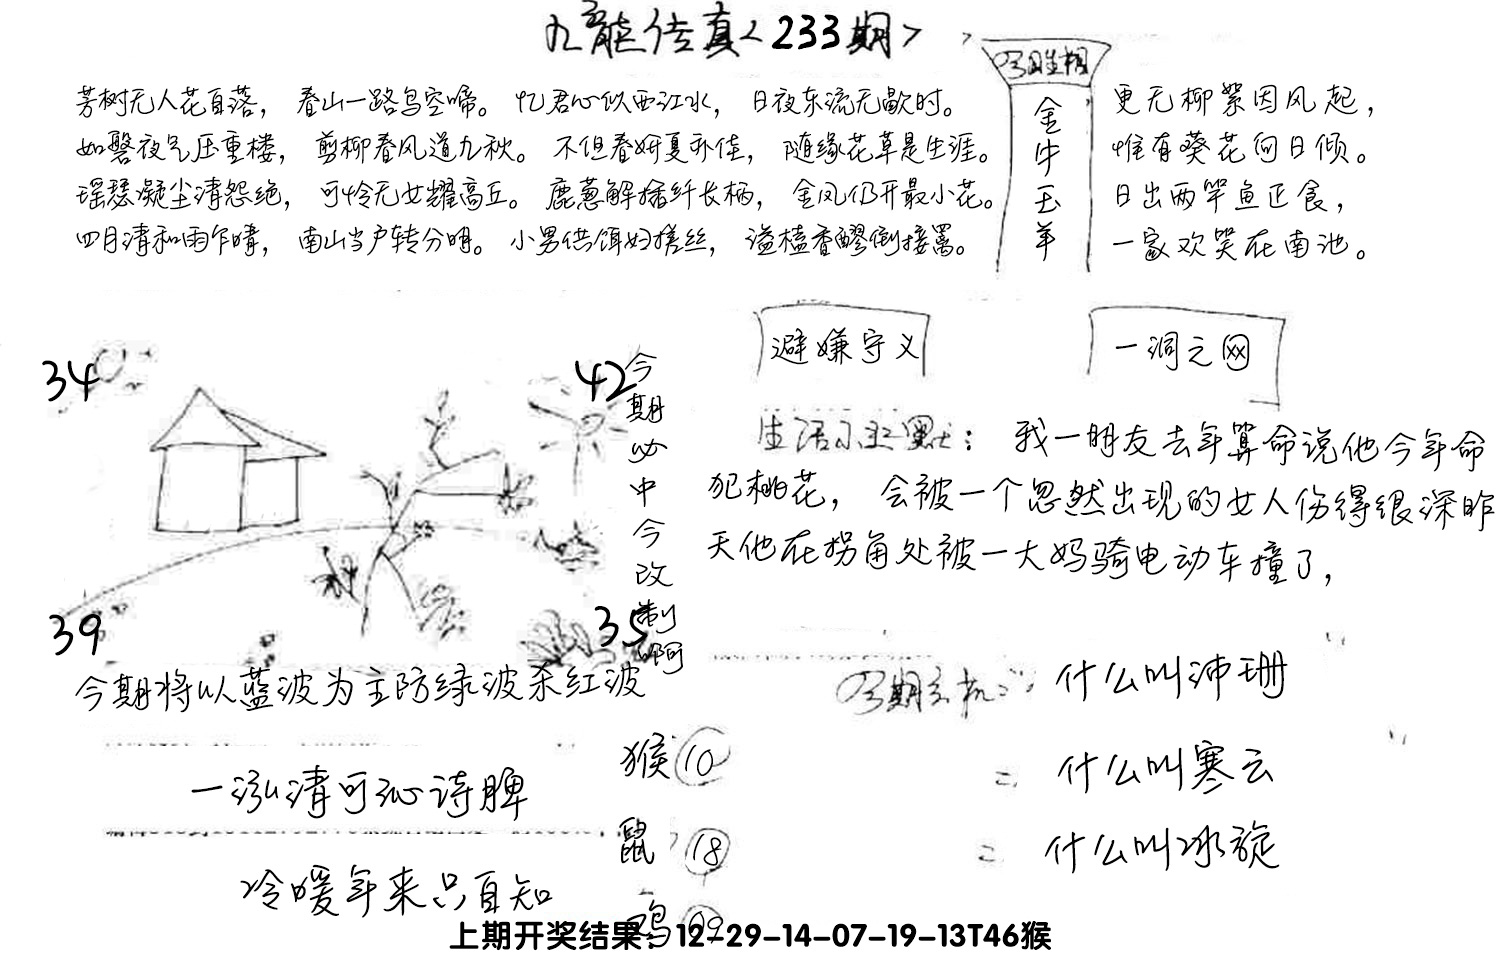 九龙传真<233期>
芳树无人花自落，春山一路鸟空啼。忆君心似西江水，日夜东流无歇时。
如磬夜气压重楼，剪柳春风道九秋。不但春妍夏亦佳，随缘花草是生涯。
瑶瑟凝尘清怨绝，可怜无女耀高丘。鹿葱解插纤长柄，金凤仍开最小花。
四月清和雨乍晴，南山当户转分明。小男供饵妇搓丝，溢榼香醪倒接罱。
今期生相
金牛玉羊
更无柳絮因风起，
惟有葵花向日倾。
日出两竿鱼正食，
一家欢笑在南池。
避嫌守义
一洞之网
34
42
39
35
今期必中今改制啊
生活小幽默：我一朋友去年算命说他今年命
犯桃花，会被一个忽然出现的女人伤得很深昨
天他在拐角处被一大妈骑电动车撞了，
今期将以蓝波为主防绿波杀红波
今期玄机：什么叫沛珊
二 什么叫寒云
二 什么叫冰旋
一泓清可沁诗脾
冷暖年来只自知
猴 10
鼠 18
鸡 09
上期开奖结果：12-29-14-07-19-13T46猴